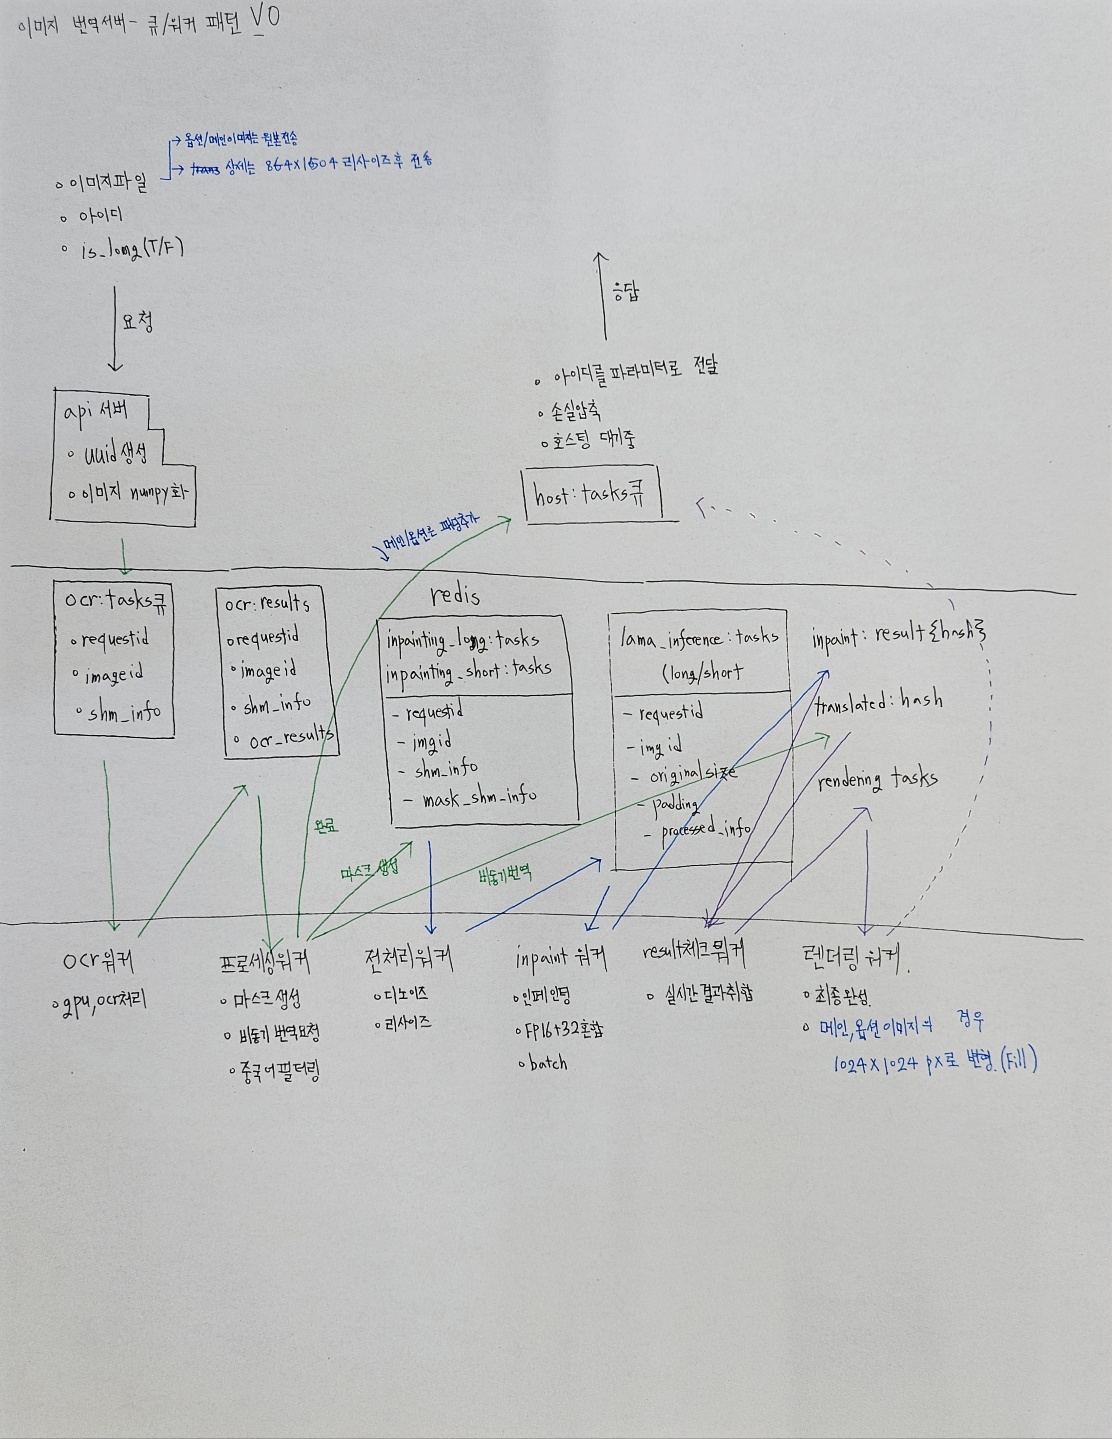 이미지 번역서버 - 큐/워커 패턴 V0
→ 옵션/메인이미지는 원본전송
→ 상세는 864x1504 리사이즈 후 전송
◦ 이미지파일
◦ 아이디
◦ is_long(T/F)
요청
응답
◦ 아이디를 파라미터로 전달
◦ 손실압축
◦ 호스팅 대기중
host:tasks큐
api 서버
◦ uuid 생성
◦ 이미지 numpy화
메인/옵션은 패딩추가
redis
ocr:tasks큐
◦ requestid
◦ imageid
◦ shm_info
ocr:results
◦ requestid
◦ imageid
◦ shm_info
◦ ocr_results
inpainting_long:tasks
inpainting_short:tasks
- requestid
- imgid
- shm_info
- mask_shm_info
lama_inference:tasks
(long/short
- requestid
- img id
- originalsize
- padding
- processed_info
inpaint: result{hash}
translated: hash
rendering tasks
완료
마스크 생성
비동기번역
ocr워커
◦ gpu, ocr처리
프로세싱워커
◦ 마스크 생성
◦ 비동기 번역요청
◦ 중국어필터링
전처리워커
◦ 디노이즈
◦ 리사이즈
inpaint 워커
◦ 인페인팅
◦ FP16+32혼합
◦ batch
result체크워커
◦ 실시간 결과취합
렌더링 워커.
◦ 최종완성.
◦ 메인,옵션 이미지의 경우
1024x1024 px로 변형.(Fill)